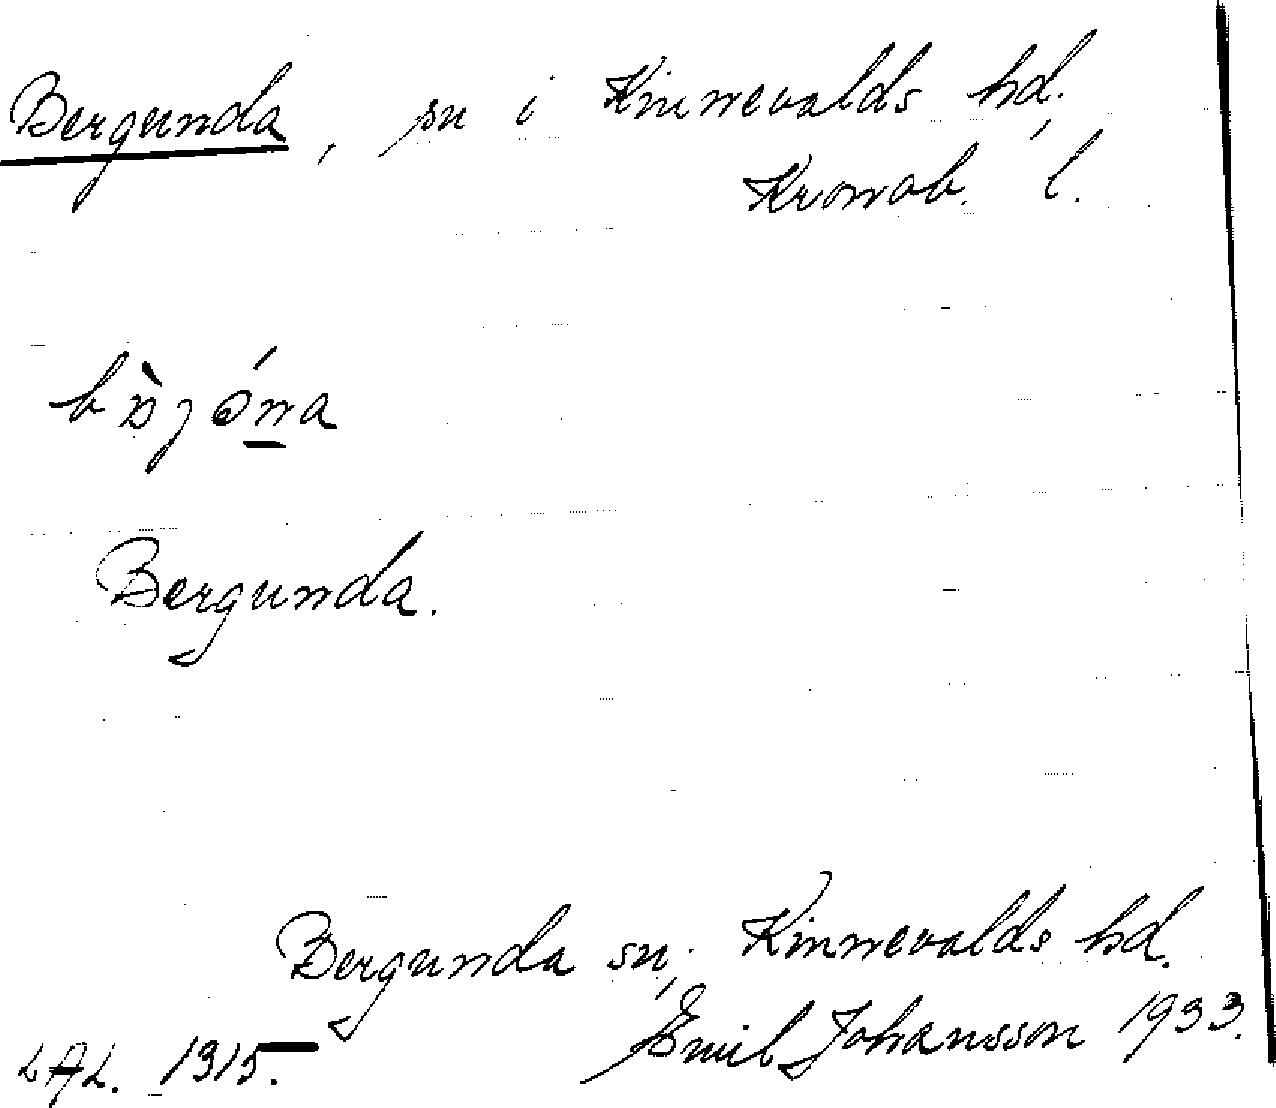 Bergunda, sn i Kinnevalds hd.,
Kronob. l.
Bergunda.
Bergunda sn, Kinnevalds hd.
Emil Johansson 1933.
LAL. 1315.